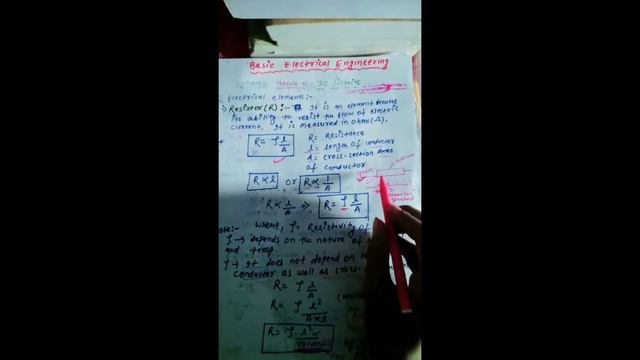 Basic Electrical Engineering
Electrical elements:-
Resistor (R) :- It is an element denotes
its ability to resist the flow of electric
current, It is measured in ohms (Ω).
R = ρ l/A
R = Resistance
l = length of conductor
A = Cross-section Area
of conductor
R ∝ l or R ∝ 1/A
R ∝ l/A ⇒ R = ρ l/A
where, ρ = Resistivity of
ρ → depends on the nature of
and temp.
ρ → It does not depend on
conductor as well as cross-
R = ρ l/A
R = ρ l²/A×l
R = ρ l²/Volume